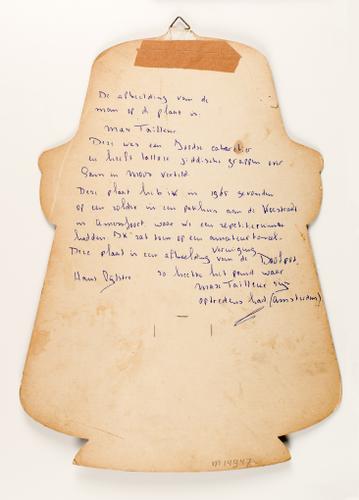 De afbeelding van de
man op de plaat is:
Max Tailleur
Deze was een Joodse cabaretier
en heeft talloze jiddische grappen over
Sam en Moos verteld.
Deze plaat heb ik in 1965 gevonden
op een zolder in een pakhuis aan de
in Amersfoort, waar we een repetitieruimte
hadden. Ik zat toen op een amateur toneel-
vereniging
Deze plaat is een afbeelding van de Doofpot,
zo heette het pand waar
Max Tailleur zijn
optredens had (Amsterdam)
Hans
M14947